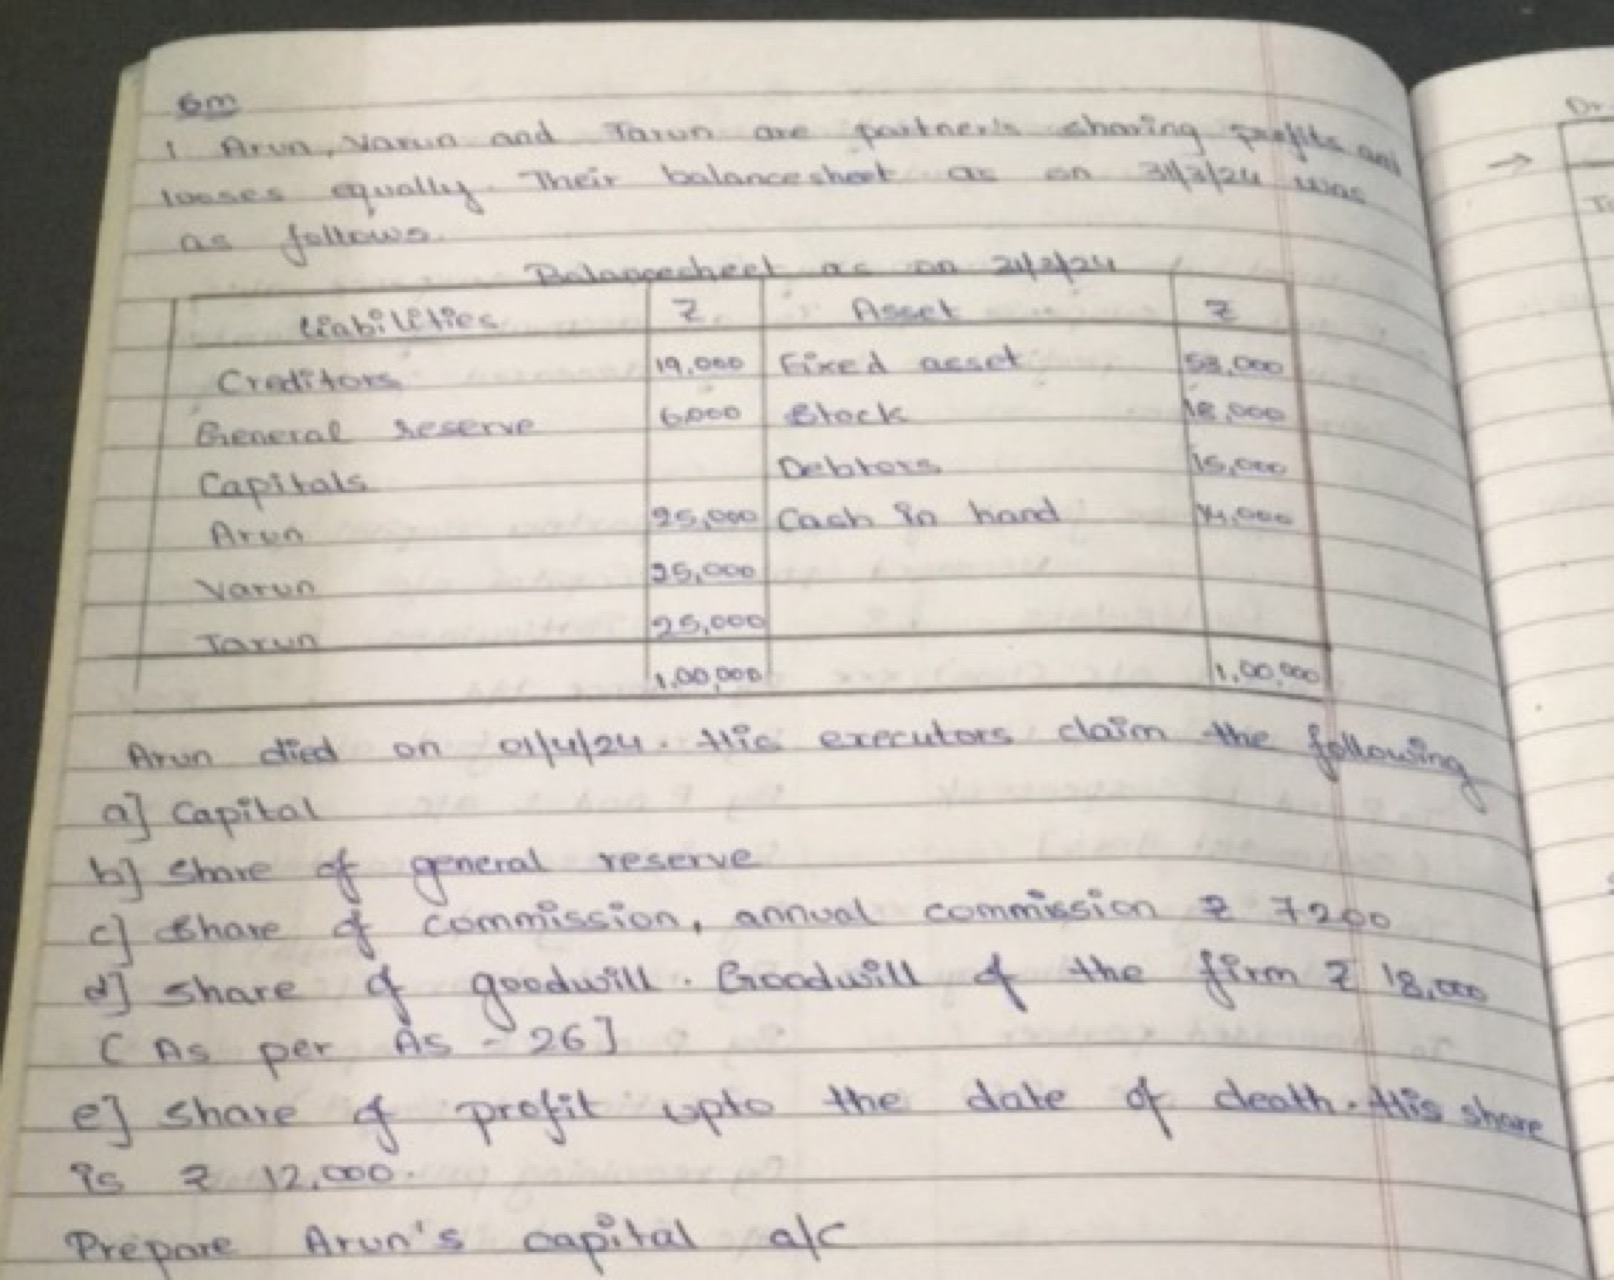 6m
1 Arun, Varun and Tarun are partner's sharing profits and
looses equally. Their balancesheet as on 31/3/24 was
as follows.
Balancesheet as on 31/3/24
Liabilities ₹ Asset ₹
Creditors 19,000 Fixed asset 53,000
General reserve 6,000 Stock 18,000
Capitals Debtors 15,000
Arun 25,000 Cash in hand 14,000
Varun 25,000
Tarun 25,000
1,00,000 1,00,000
Arun died on 01/4/24. His executors claim the following
a] Capital
b] Share of general reserve
c] Share of commission, annual commission ₹ 7200
d] Share of goodwill. Goodwill of the firm ₹ 18,000
( As per AS - 26]
e] Share of profit upto the date of death. His share
is ₹ 12,000.
Prepare Arun's capital a/c
Dr
→
To